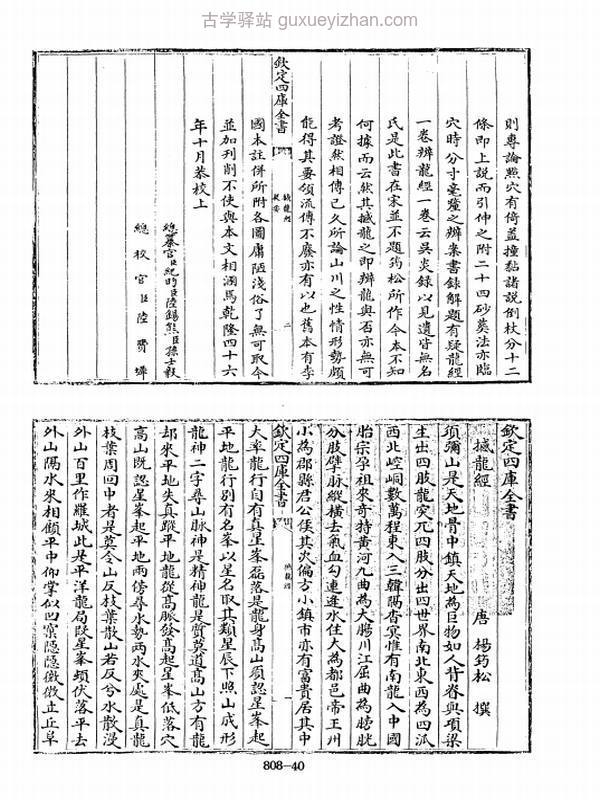 古学驿站 guxueyizhan.com
則專論點穴有倚蓋撞黏諸説倒杖分十二
條即上説而引伸之附二十四砂葬法亦臨
穴時分寸毫釐之辨案書録解題有疑龍經
一卷辨龍經一卷云吳炎録以見遺皆無名
氏是此書在宋並不題筠松所作今本不知
何據而云然其撼龍之即辨龍與否亦無可
考證然相傳已久所論山川之性情形勢頗
欽定四庫全書
撼龍經
提要
二
能得其要領流傳不廢亦有以也舊本有李
國本註併所附各圖庸陋淺俗了無可取今
並加刋削不使與本文相溷焉乾隆四十六
年十月恭校上
總纂官臣紀昀臣陸錫熊臣孫士毅
總校官臣陸費墀
欽定四庫全書
撼龍經
唐 楊筠松 撰
須彌山是天地骨中鎮天地為巨物如人背脊與項梁
生出四肢龍突兀四肢分出四世界南北東西為四派
西北崆峒數萬程東入三韓隔杳冥惟有南龍入中國
胎宗孕祖來奇特黃河九曲為大腸川江屈曲為膀胱
分肢擘脈縱横去氣血勾連逢水住大為都邑帝王州
小為郡縣君公侯其次偏方小鎮市亦有富貴居其中
欽定四庫全書
撼龍經
一
大率龍行自有真星峯磊落是龍身高山須認星峯起
平地龍行别有名峯以星名取其類星辰下照山成形
龍神二字尋山脈神是精神龍是質莫道高山方有龍
却來平地失真蹤平地龍從高脈發高起星峯低落穴
高山既認星峯起平地兩傍尋水勢兩水夾處是真龍
枝葉周回中者是莫令山反枝葉散山若反兮水散漫
外山百里作羅城此是平洋龍局段星峯頓伏落平去
外山隔水來相顧平中仰掌似凹窠隱隱微微立丘阜
808-40